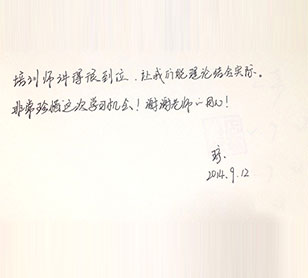 培训师讲得很到位，让我们能理论结合实际。
非常珍惜这次学习机会！谢谢老师的用心！
2014.9.12